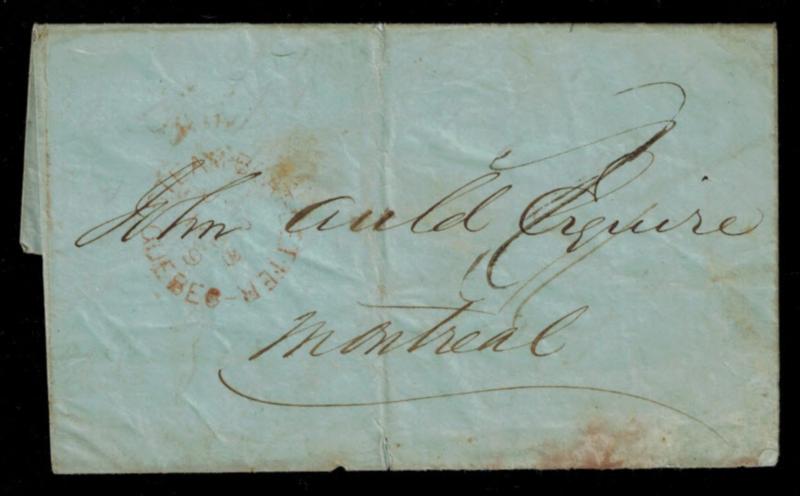 John Auld Esquire
Montreal
QUEBEC